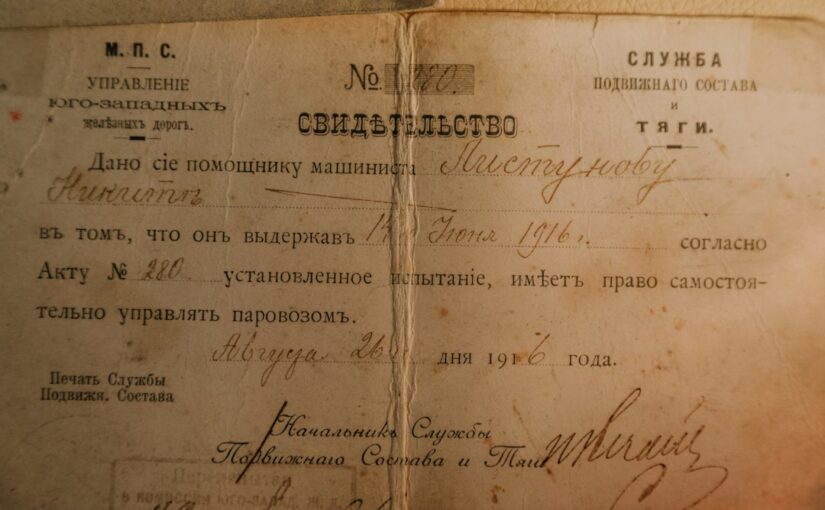 М. П. С.
УПРАВЛЕНІЕ
ЮГО-ЗАПАДНЫХЪ
желѣзныхъ дорогъ.
№ 280.
СЛУЖБА
ПОДВИЖНАГО СОСТАВА
и
ТЯГИ.
СВИДѢТЕЛЬСТВО
Дано сіе помощнику машиниста Пистунову
Никитѣ
въ томъ, что онъ выдержавъ 14 Іюня 1916 г. согласно
Акту № 280 установленное испытаніе, имѣетъ право самостоя-
тельно управлять паровозомъ.
Августа 26 дня 1916 года.
Печать Службы
Подвижн. Состава
Начальникъ Службы
Подвижнаго Состава и Тяги